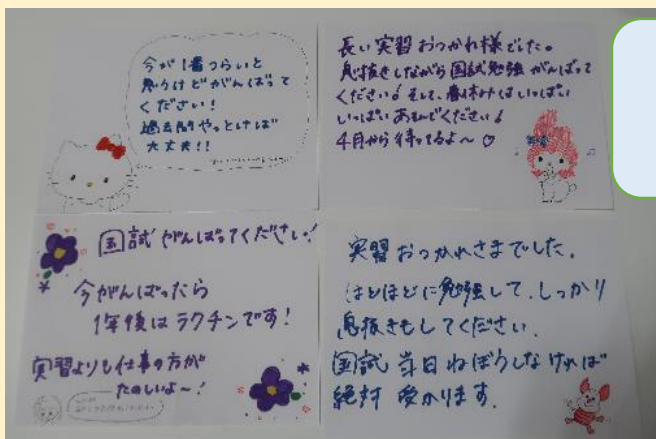 今が1番つらいと
思うけどがんばって
ください!
過去問やっとけば
大丈夫!!
長い実習おつかれ様でした。
息抜きしながら国試勉強がんばって
ください!そして、春休みはいっぱい
いっぱいあそんでください!
4月から待ってるよ〜♡
国試がんばってください!
今がんばったら
1年後はラクチンです!
実習よりも仕事の方が
たのしいよ〜!
実習おつかれさまでした。
ほどほどに勉強して、しっかり
息抜きもしてください。
国試当日ねぼうしなければ
絶対受かります。